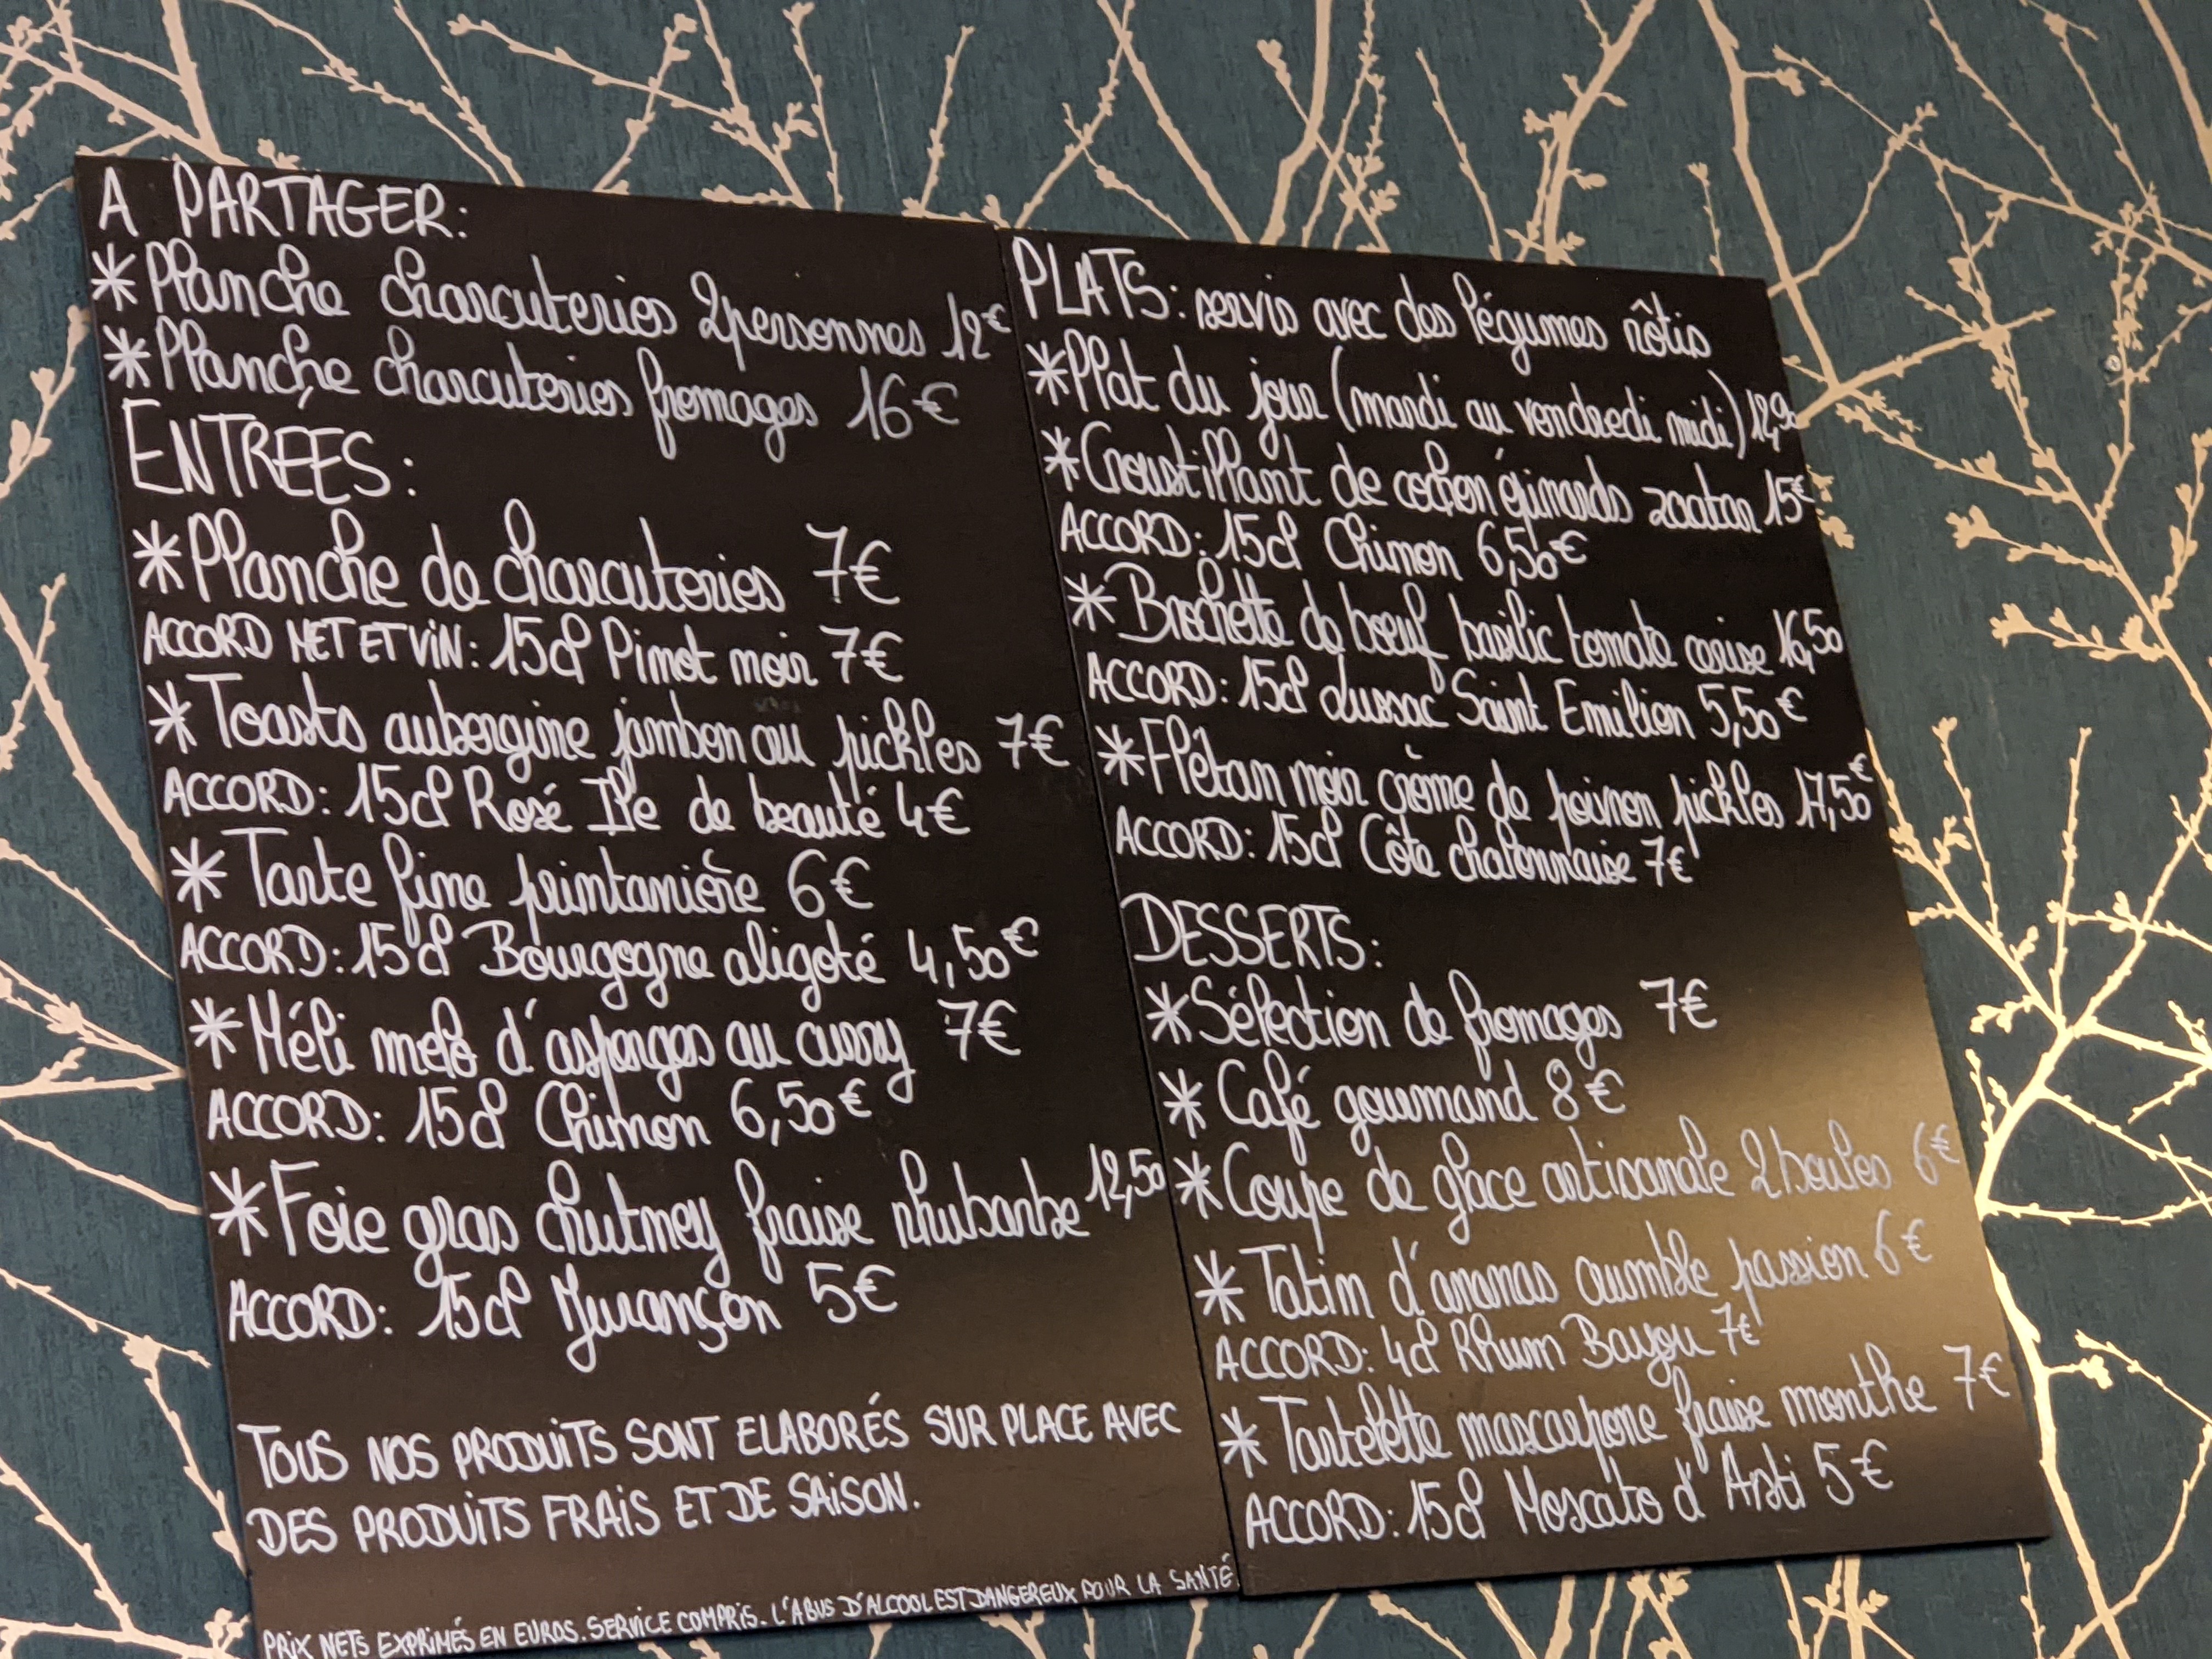 A PARTAGER:
*Planche charcuteries 2personnes 12€
*Planche charcuteries fromages 16€
ENTRÉES:
*Planche de charcuteries 7€
ACCORD MET ET VIN: 15cl Pinot noir 7€
*Toasts aubergine jambon cru pickles 7€
ACCORD: 15cl Rosé Ile de beauté 4€
*Tarte fine printanière 6€
ACCORD: 15cl Bourgogne aligoté 4,50€
*Méli melo d'asperges au curry 7€
ACCORD: 15cl Chinon 6,50€
*Foie gras chutney fraise rhubarbe 12,50
ACCORD: 15cl Jurançon 5€
TOUS NOS PRODUITS SONT ELABORÉS SUR PLACE AVEC
DES PRODUITS FRAIS ET DE SAISON.
PRIX NETS EXPRIMÉS EN EUROS. SERVICE COMPRIS. L'ABUS D'ALCOOL EST DANGEREUX POUR LA SANTÉ
PLATS: servis avec des légumes rôtis
*Plat du jour (mardi au vendredi midi) 12,90
*Croustillant de cochon épinards zaatar 15€
ACCORD: 15cl Chinon 6,50€
*Brochette de boeuf basilic tomate cerise 16,50
ACCORD: 15cl Lussac Saint Emilion 5,50€
*Flétan noir crème de poivron pickles 17,50€
ACCORD: 15cl Côte chalonnaise 7€
DESSERTS:
*Sélection de fromages 7€
*Café gourmand 8€
*Coupe de glace artisanale 2boules 6€
*Tatin d'ananas crumble passion 6€
ACCORD: 4cl Rhum Bayou 7€
*Tartelette mascarpone fraise menthe 7€
ACCORD: 15cl Moscato d'Asti 5€